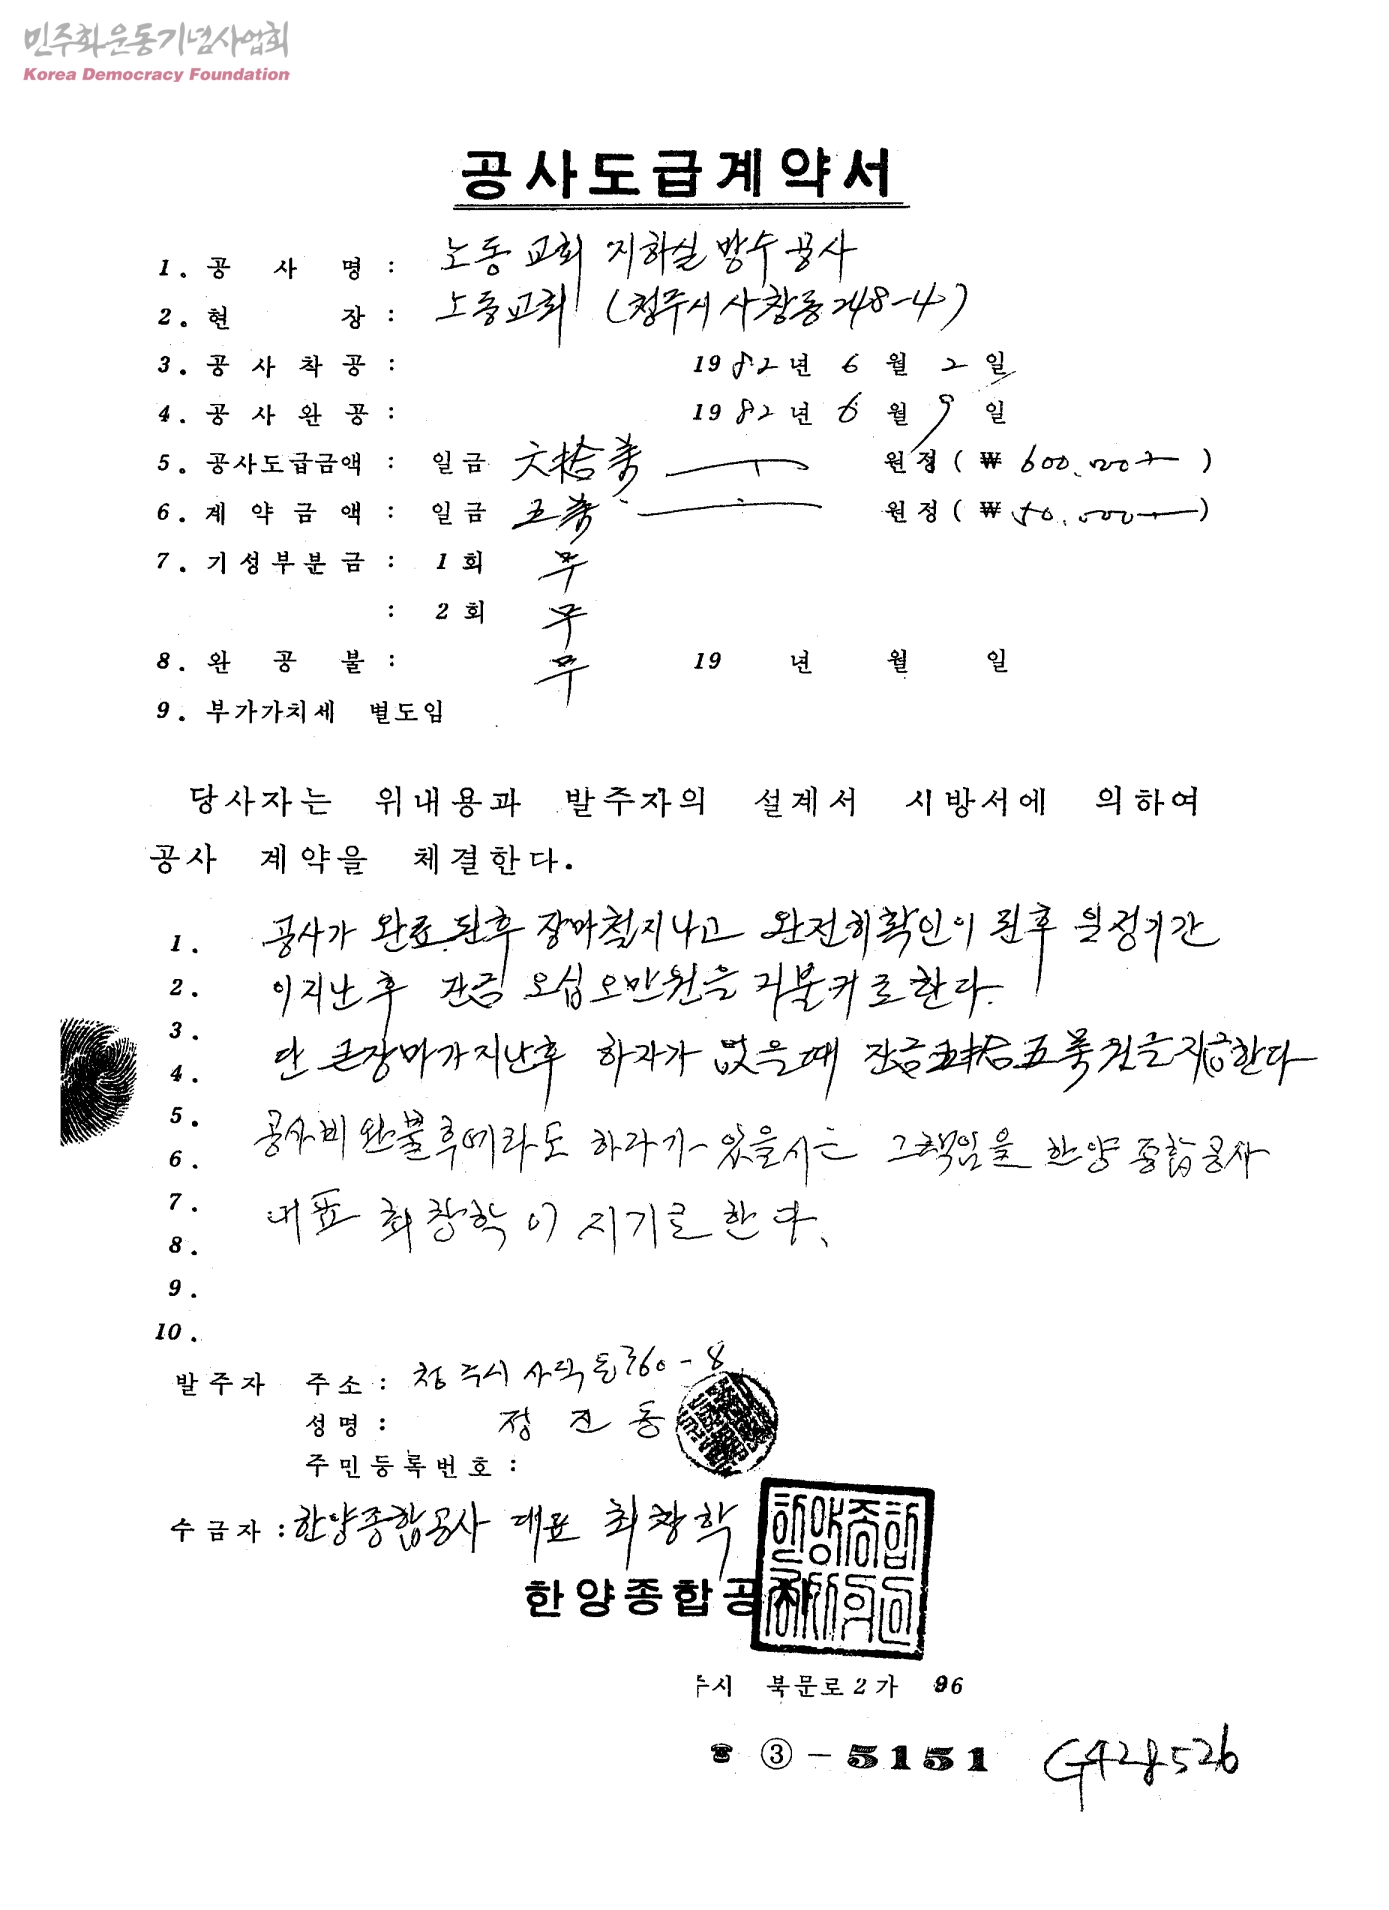 민주화운동기념사업회
Korea Democracy Foundation
공사도급계약서
1. 공 사 명 : 노동교회 지하실 방수 공사
2. 현 장 : 노동교회 (청주시 사창동 248-4)
3. 공 사 착 공 : 1982년 6월 2일
4. 공 사 완 공 : 1982년 6월 9일
5. 공사도급금액 : 일금 六拾萬 원정 (₩ 600,000 )
6. 계 약 금 액 : 일금 五萬 원정 (₩ 50,000 )
7. 기성부분금 : 1회 무
: 2회 무
8. 완 공 불 : 무 19 년 월 일
9. 부가가치세 별도임
당사자는 위내용과 발주자의 설계서 시방서에 의하여
공사 계약을 체결한다.
1. 공사가 완료된후 장마철지나고 완전히확인이 된후 일정기간
2. 이지난후 잔금 오십오만원을 지불키로한다.
3.
4. 단 큰장마가지난후 하자가 없을때 잔금五拾五萬원을지급한다
5.
6. 공사비 완불후에라도 하자가 있을시는 그책임을 한양종합공사
7. 대표 최창학이 지기로 한다.
8.
9.
10.
발주자 주소 : 청주시 사직동360-8
성명 : 정진동
주민등록번호 :
수금자 : 한양종합공사 대표 최창학
한양종합공사
주시 북문로2가 96
☎ ③-5151 428526